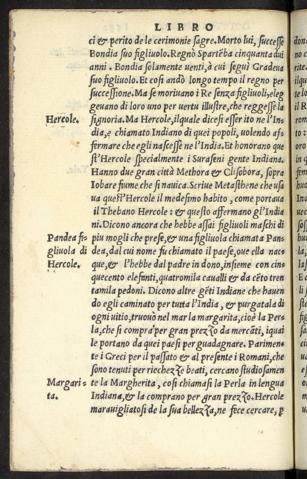 LIBRO
ci & perito de le cerimonie sagre. Morto lui, successe
Bondia suo figliuolo. Regnò Spartēba cinquanta dui
anni. Bondia solamente uenti, à cui seguì Gradeua
suo figliuolo. Et cosi andò longo tempo il regno per
successione. Ma se moriuano i Re senza figliuoli, eleg
geuano di loro uno per uertu illustre, che reggesse la
Hercole.
signoria. Ma Hercole, ilquale dicesi esser ito ne l'In
dia, e chiamato Indiano di quei popoli, uolendo af
fermare che egli nascesse ne l'India. Et honorano que
st'Hercole specialmente i Suraseni gente Indiana.
Hanno due gran città Methora & Clisobora, sopra
Iobare fiume che si nauica. Scriue Metasthene che usa
ua quest'Hercole il medesimo habito, come portaua
il Thebano Hercole: & questo affermano gl'India
ni. Dicono ancora che hebbe assai figliuoli maschi di
Pandea fi
gliuola di
Hercole.
piu mogli che prese, & una figliuola chiamata Pan
dea, dal cui nome fu chiamato il paese, oue ella nac
que, & l'hebbe dal padre in dono, insieme con cin
quecento elefanti, quatromila caualli & da cēto tren
tamila pedoni. Dicono altre gēti Indiane che hauen
do egli caminato per tutta l'India, & purgatala di
ogni uitio, trouuò nel mar la margarita, cioè la Per
la, che si compra per gran prezzo da mercāti, iquai
le portano da quei paesi per guadagnare. Parimen
te i Greci per il passato & al presente i Romani, che
sono tenuti per riechezze beati, cercano studiosamen
Margari
ta.
te la Margherita, cosi chiamasi la Perla in lengua
Indiana, & la comprano per gran prezzo. Hercole
marauigliatosi de la sua bellezza, ne fece cercare, p